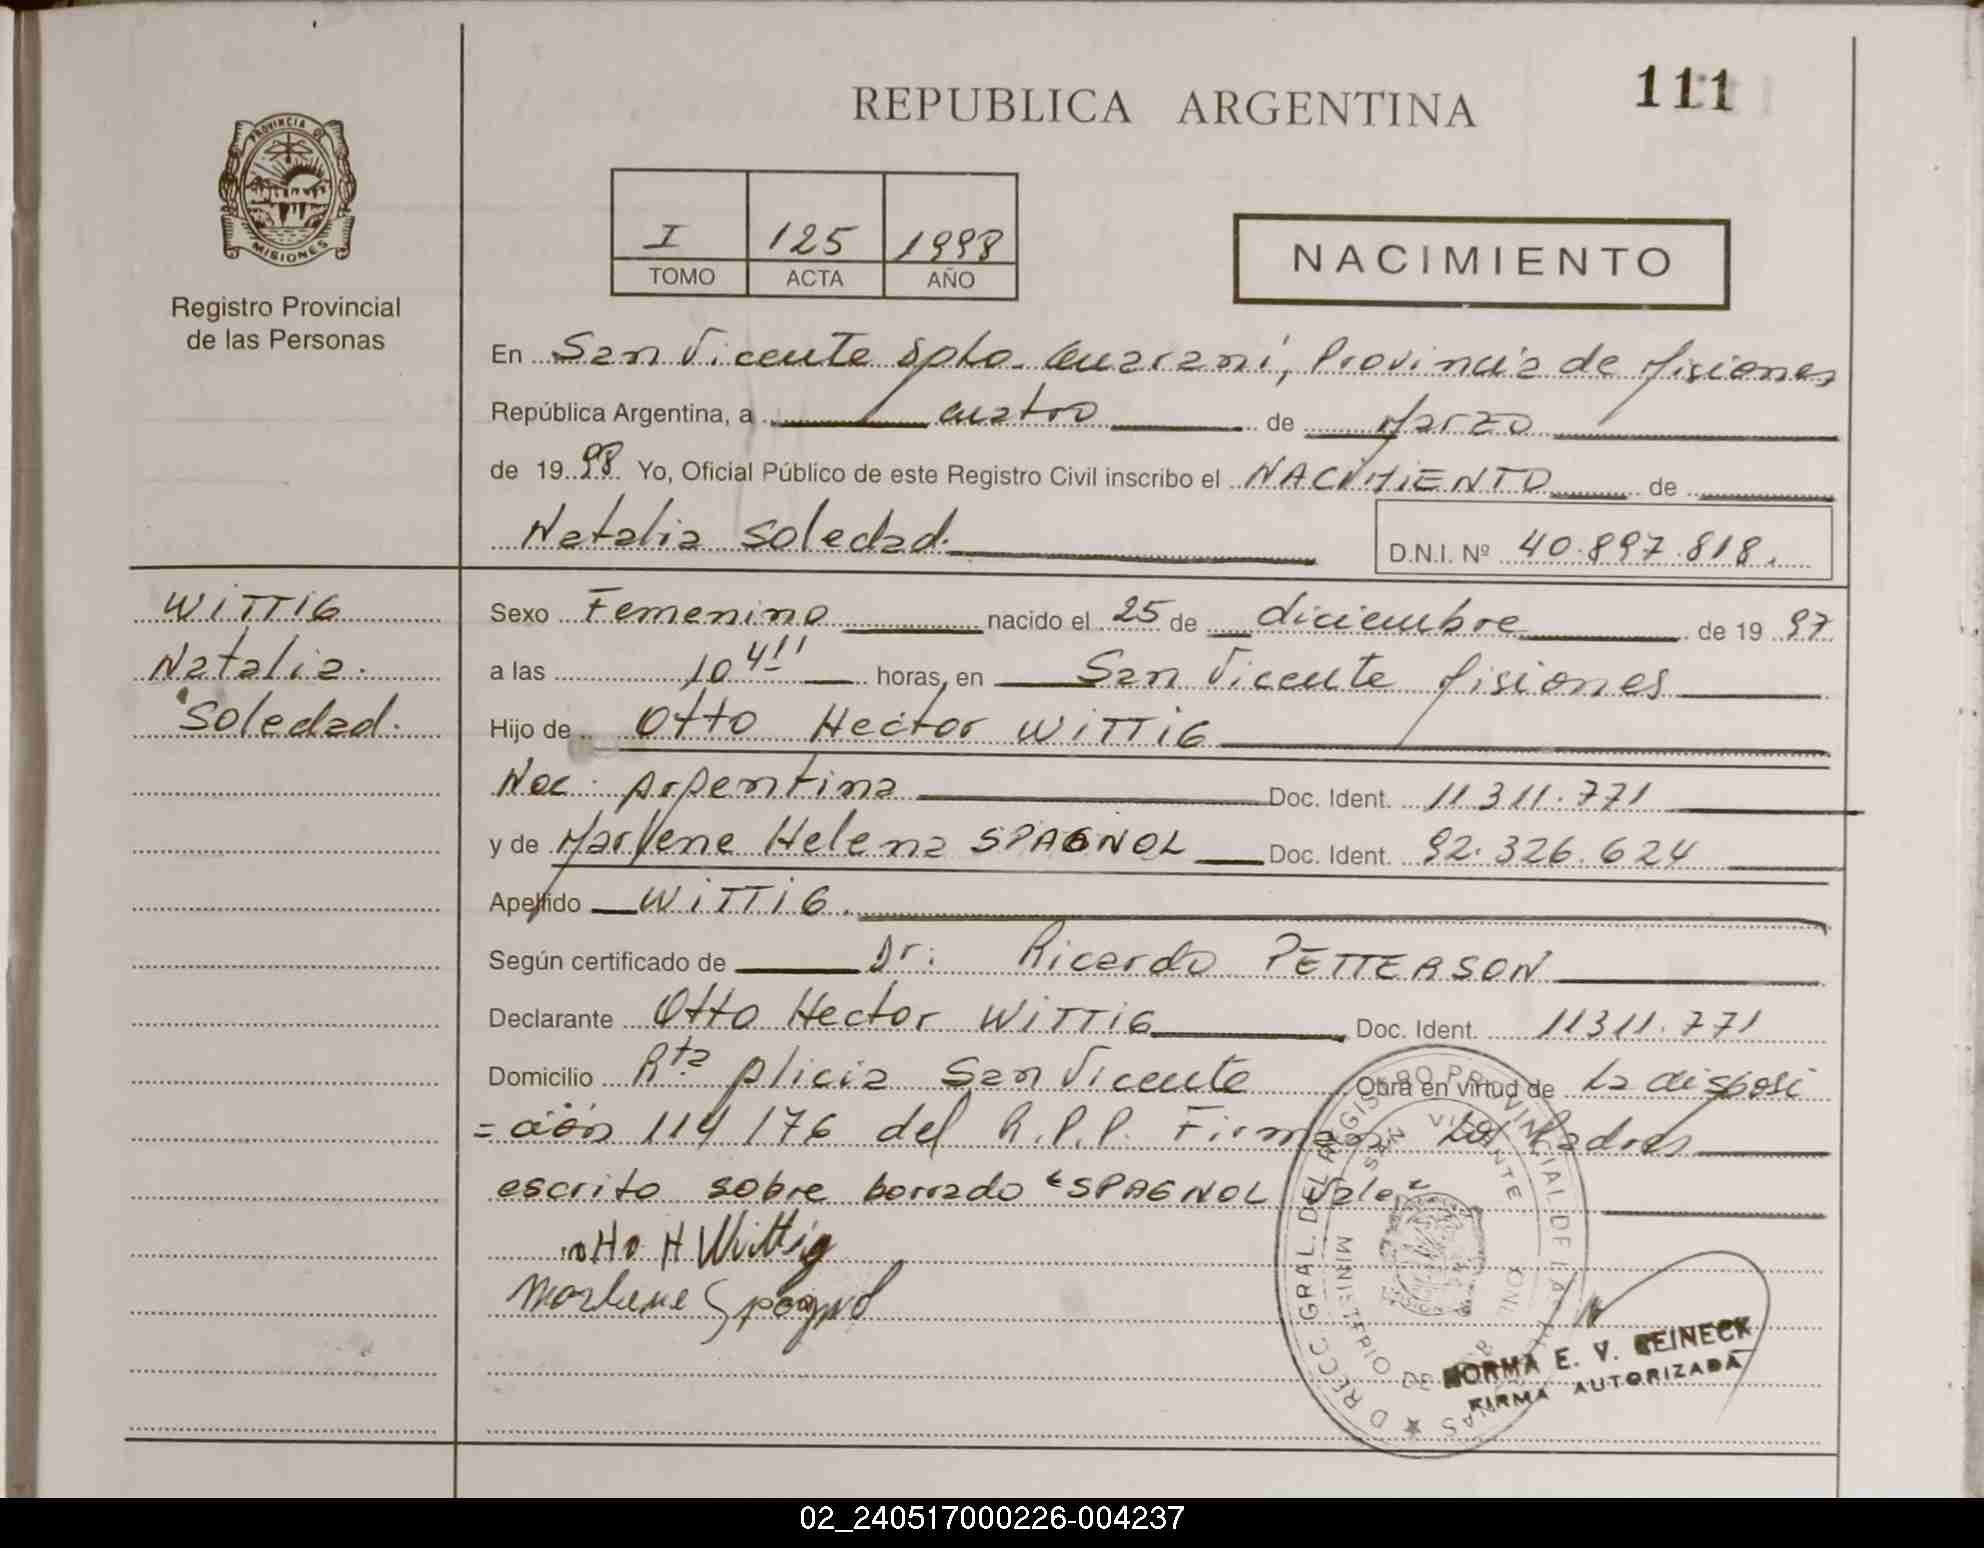 111
REPUBLICA ARGENTINA
PROVINCIA DE
MISIONES
Registro Provincial
de las Personas
I 125 1998
TOMO ACTA AÑO
NACIMIENTO
En San Vicente Dpto. Guaraní, Provincia de Misiones
República Argentina, a cuatro de Marzo
de 1998 Yo, Oficial Público de este Registro Civil inscribo el NACIMIENTO de
Natalia Soledad.
D.N.I. Nº 40.897.818.
WITTIG
Natalia.
Soledad.
Sexo Femenino nacido el 25 de diciembre de 1997
a las 10 horas, en San Vicente Misiones
Hijo de Otto Hector WITTIG
Nac. Argentina Doc. Ident. 11311.771
y de Marlene Helena SPAGNOL Doc. Ident. 92.326.624
Apellido WITTIG.
Según certificado de Dr: Ricardo PETTERSON
Declarante Otto Hector WITTIG Doc. Ident. 11311.771
Domicilio Rta plicia San Vicente Obra en virtud de La disposi
=ción 114/76 del R.P.P. Firman Los Padres
escrito sobre borrado "SPAGNOL Vale"
Otto H Wittig
Marlene Spagnol
DRECC. GRAL. DEL REGISTRO PROVINCIAL DE LAS PERSONAS
MINISTERIO DE GOB
SAN VICENTE
NORMA E. V. REINECK
FIRMA AUTORIZADA
02_240517000226-004237